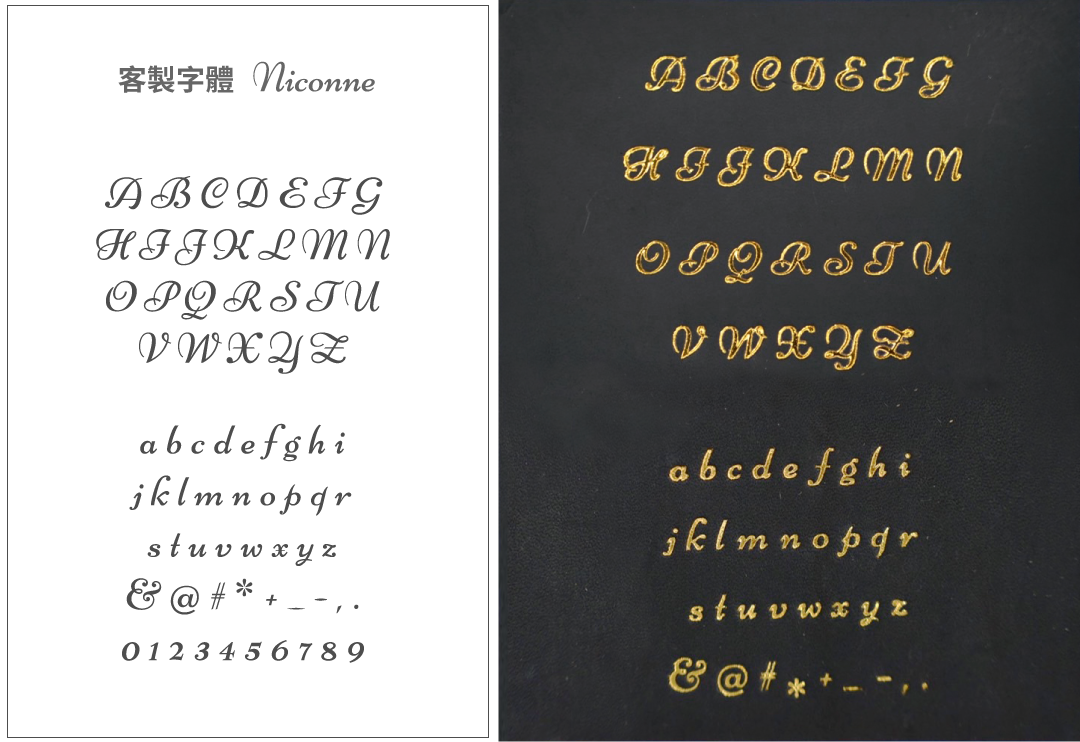 客製字體 Niconne
A B C D E F G
H I J K L M N
O P Q R S T U
V W X Y Z
a b c d e f g h i
j k l m n o p q r
s t u v w x y z
& @ # * + _ - , .
0 1 2 3 4 5 6 7 8 9
A B C D E F G
H I J K L M N
O P Q R S T U
V W X Y Z
a b c d e f g h i
j k l m n o p q r
s t u v w x y z
& @ # * + _ - , .